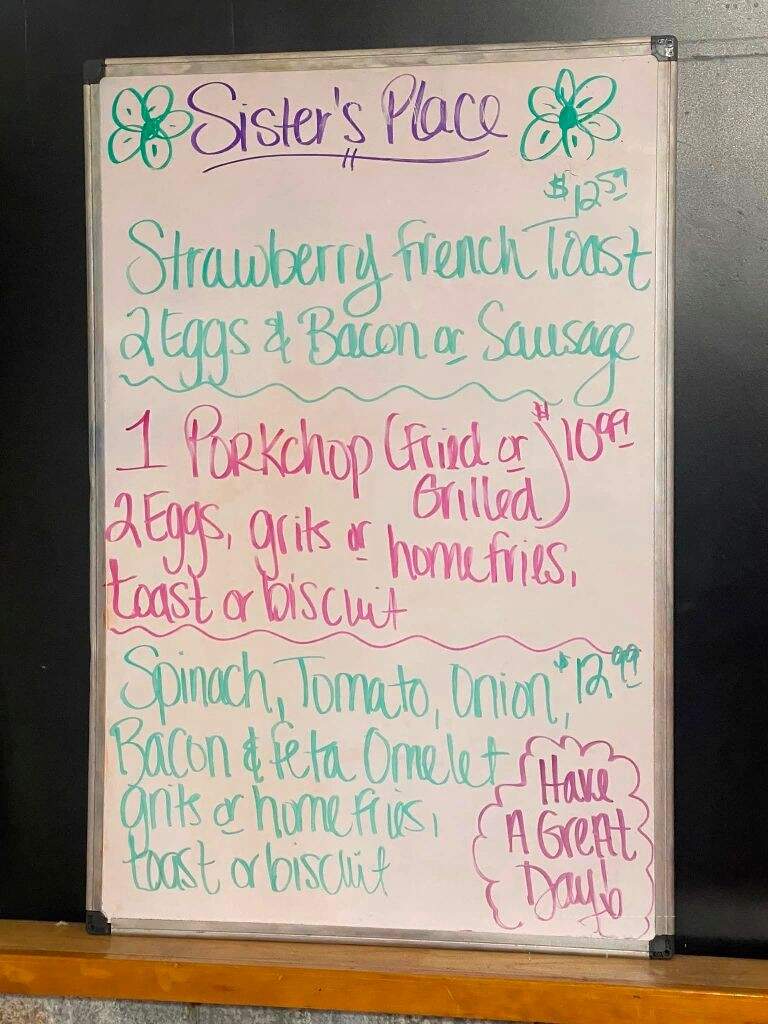 Sister's Place
$12.59
Strawberry French Toast
2 Eggs & Bacon or Sausage
1 Porkchop (Fried or $10.99
Grilled)
2 Eggs, grits or home fries,
toast or biscuit
Spinach, Tomato, Onion, $12.99
Bacon & Feta Omelet
grits or home fries,
toast or biscuit
Have
A Great
Day!